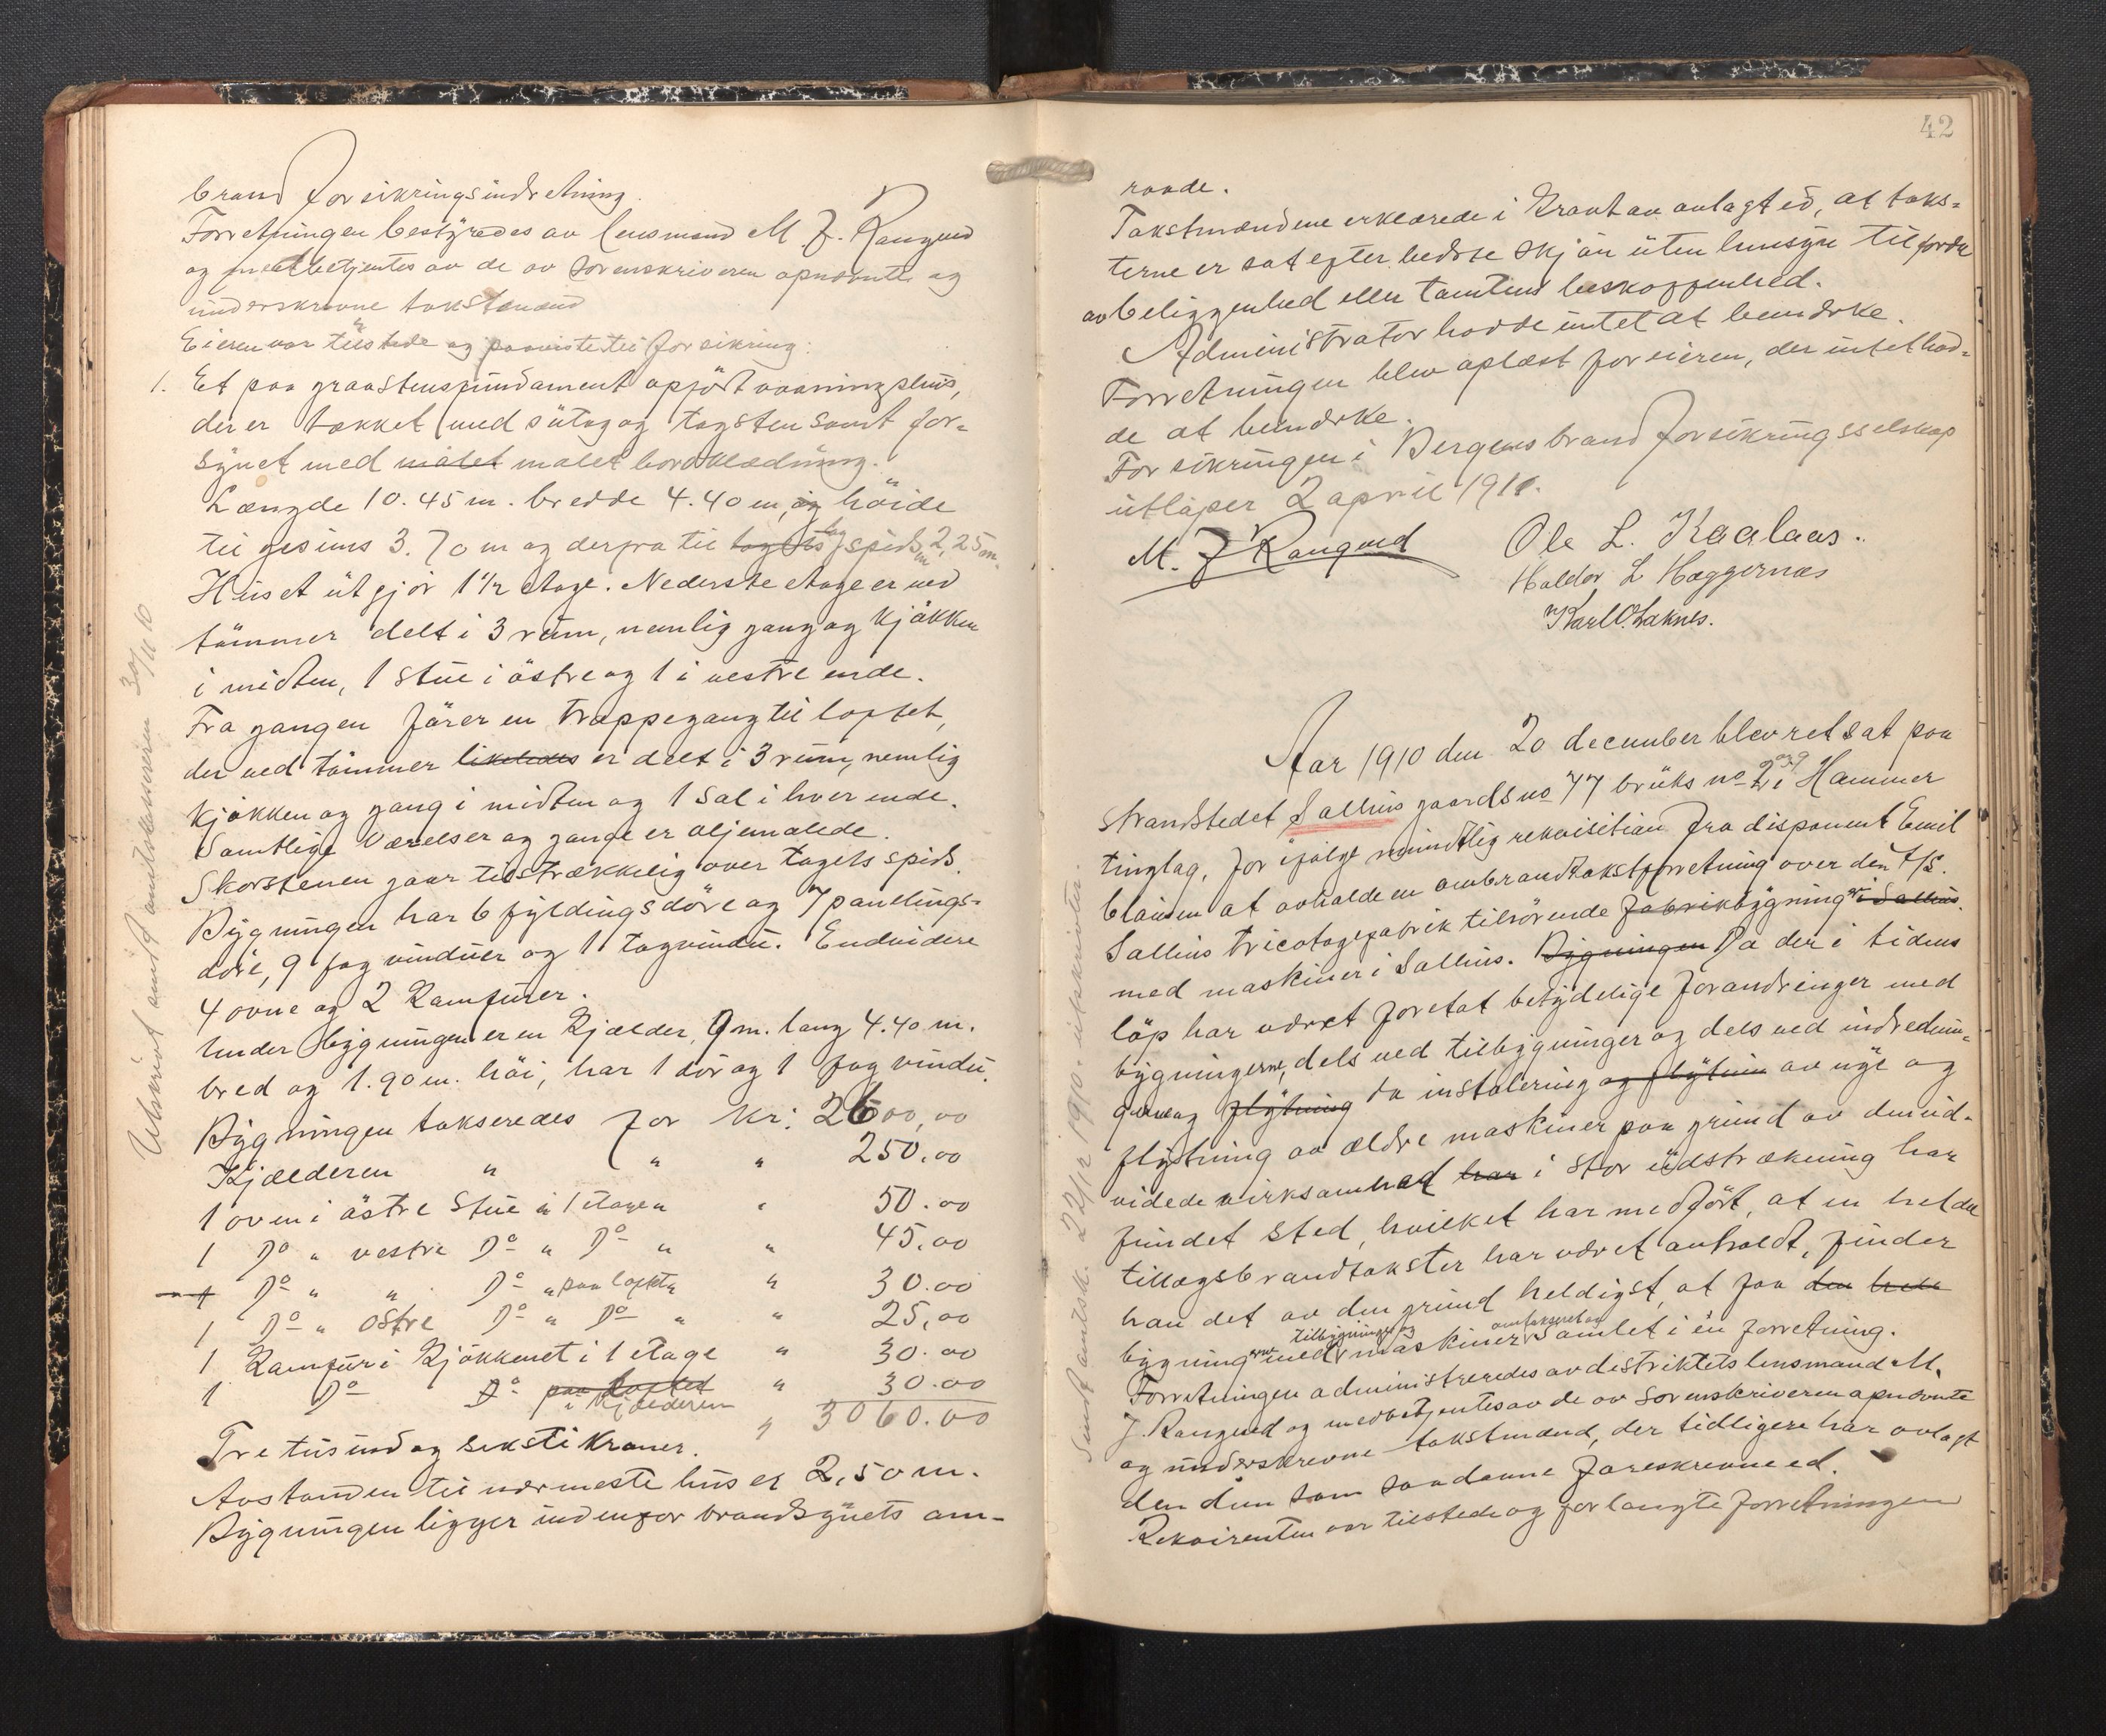 brandforsikringsindretning.
Forretningen bestyredes av lensmand M. J.
og medbetjentes av de av sorenskriveren opnævnte og
underskrevne takstmænd
Eieren var tilstede og paaviste til forsikring:
1. Et paa graastensfundament opført vaaningshus,
der er tækket med sutag og tagsten samt for-
synet med malet malet bordklædning.
Længde 10.45 m. bredde 4.40 m, og høide
til gesims 3.70 m og derfra til tagets spids 2,25 m.
Huset utgjør 1 1/2 etage. Nederste etage er ved
tømmer delt i 3 rum, nemlig gang og kjøkken
i midten, 1 stue i østre og 1 i vestre ende.
Fra gangen fører en trappegang til loftet,
der ved tømmer likeledes er delt i 3 rum, nemlig
kjøkken og gang i midten og 1 sal i hver ende.
Samtlige værelser og gange er oljemalede.
Skorstenen gaar tilstrækkelig over tagets spids.
Bygningen har 6 fyldingsdøre og 7 panelings-
døre, 9 fag vinduer og 1 tagvindu. Endvidere
4 ovne og 2 komfurer.
Under bygningen er en kjælder, 9 m. lang 4.40 m.
bred og 1.90 m. høi, har 1 dør og 1 fag vindu.
Bygningen takseredes for kr: 2600,00
Kjælderen " " " 250.00
1 ovn i østre stue i 1 etage " 50.00
1 Do " vestre Do " Do " " 45.00
1 Do " " Do " paa loftet " 30.00
1 Do " østre Do " Do " " 25,00
1 Komfur i kjøkkenet i 1 etage " 30.00
1 Do Do paa loftet i kjælderen " 30.00
" 3060.00
Tre tusind og seksti kroner.
Avstanden til nærmeste hus er 2,50 m.
Bygningen ligger indenfor brandsynets om-
Utskrevet sendt amtskammeren 30/11 10
42
raade.
Takstmændene erklærede i kraft av avlagt ed, at taks-
terne er sat efter bedste skjøn uten hensyn til fordel
av beliggenhed eller tomtens beskaffenhed.
Administrator hadde intet at bemærke.
Forretningen blev oplæst for eieren, der intet had-
de at bemærke.
Forsikringen i Bergens brandforsikringsselskap
utløper 2 april 1911.
M. J. Ole L. Kaalaas.
Haldor L Hæggernæs
Karl O. Laknes.
Aar 1910 den 20 december blev ret sat paa
strandstedet Salhus gaards no 77 bruks no 2 i Hammer
tinglag, for ifølge mundtlig rekvisition fra disponent Emil
Clausen at avholde en ombrandtakstforretning over den A/S.
Salhus tricotagefabrik tilhørende fabrikbygning i Salhus.
med maskiner i Salhus. Bygningen Da der i tidens
løp har været foretat betydelige forandringer med
bygningerne, dels ved tilbygninger og dels ved indrednin-
ger og flytning da instalering og flytning av nye og
flytning av ældre maskiner paa grund av den ud-
videde virksomhed har i stor udstrækning har
fundet sted, hvilket har medført, at en hel del
tillægsbrandtakster har været avholdt, finder
han det av den grund heldigst, at faa den hele
bygningerne med tilbygninger og maskiner omtakseret og samlet i en forretning.
Forretningen administreredes av distriktets lensmand M.
J. og medbetjentes av de av sorenskriveren opnævnte
og underskrevne takstmænd, der tidligere har avlagt
den dem som saadanne foreskrevne ed.
Rekvirenten var tilstede og forlangte forretningen
Sendt amtsk. 22/12 1910. utskrivter.